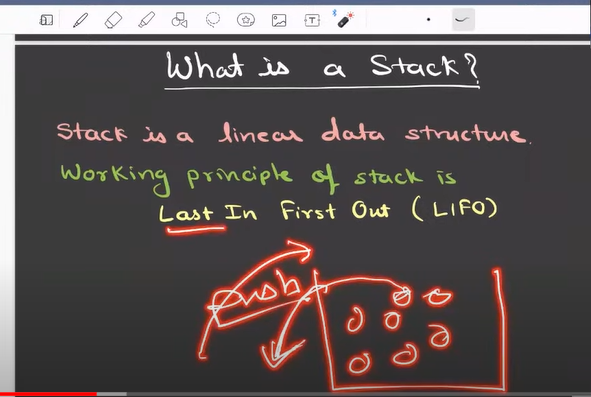 What is a Stack?
Stack is a linear data structure.
Working principle of stack is
Last In First Out (LIFO)
Push